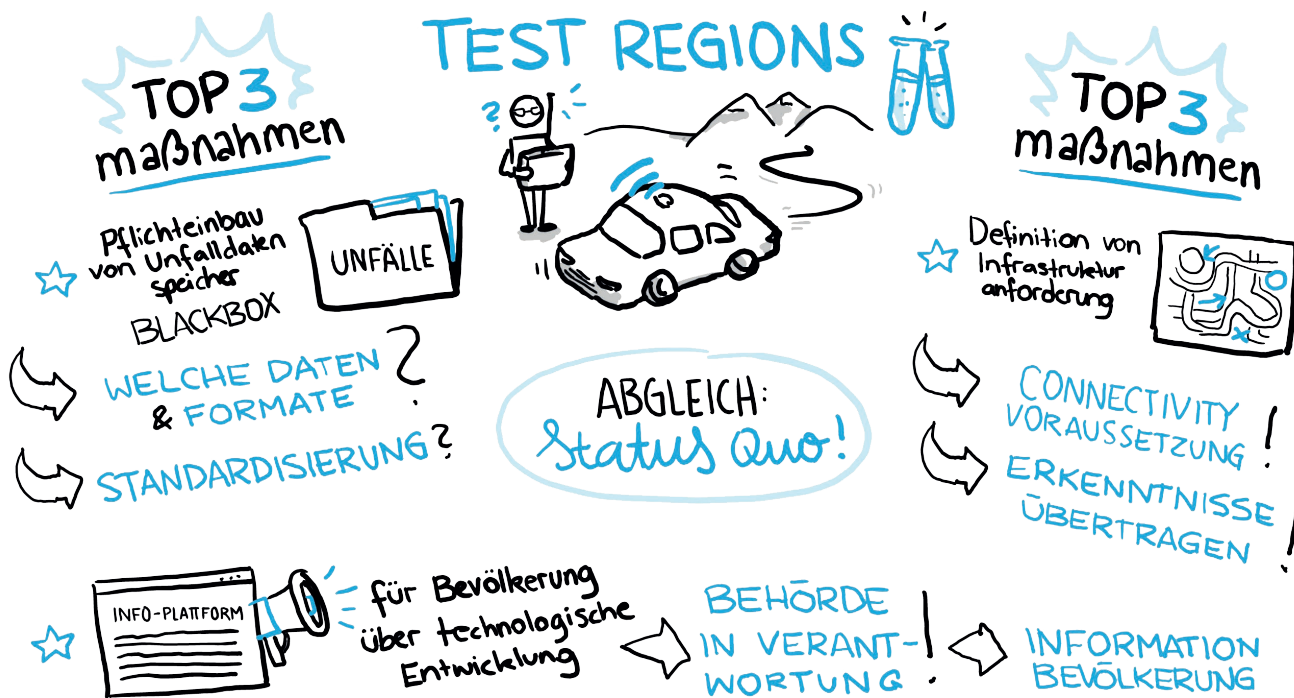 TEST REGIONS
TOP 3
maßnahmen
Pflichteinbau
von Unfalldaten
speicher
BLACKBOX
UNFÄLLE
WELCHE DATEN
& FORMATE ?
STANDARDISIERUNG?
?
ABGLEICH:
Status Quo!
TOP 3
maßnahmen
Definition von
Infrastruktur
anforderung
CONNECTIVITY
VORAUSSETZUNG !
ERKENNTNISSE
ÜBERTRAGEN !
INFO-PLATTFORM
für Bevölkerung
über technologische
Entwicklung
BEHÖRDE
IN VERANT-
WORTUNG !
INFORMATION
BEVÖLKERUNG